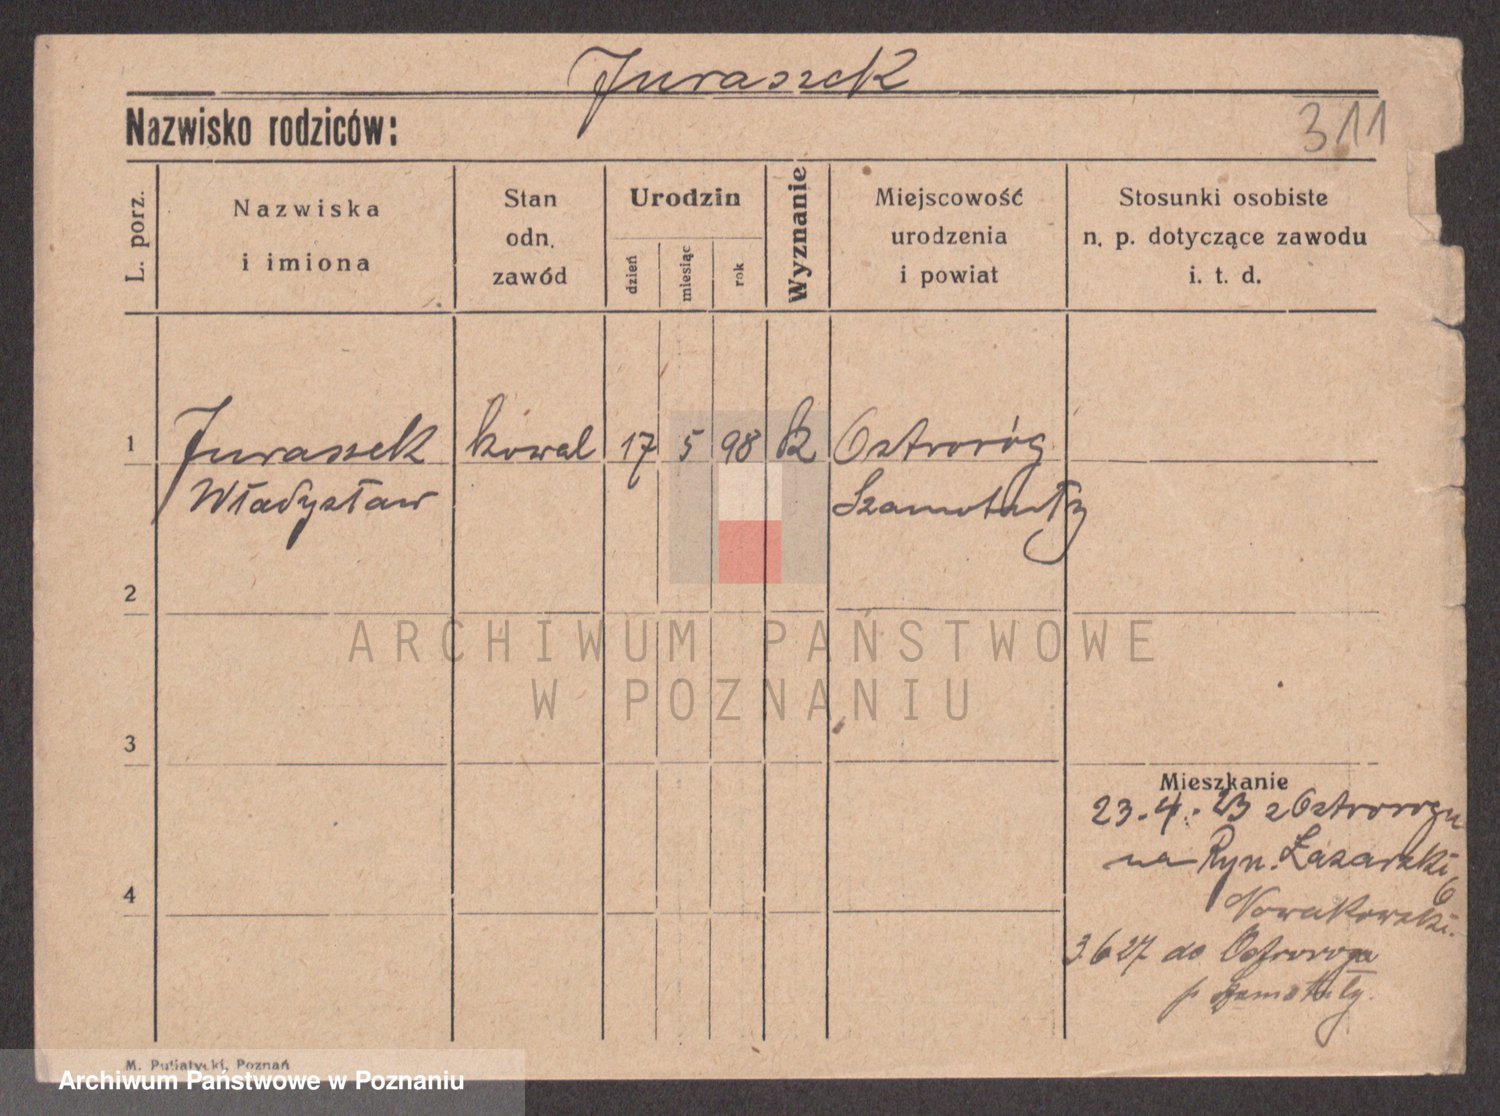 Juraszek
Nazwisko rodziców:
311
L. porz.
Nazwiska
i imiona
Stan
odn.
zawód
Urodzin
dzień
miesiąc
rok
Wyznanie
Miejscowość
urodzenia
i powiat
Stosunki osobiste
n. p. dotyczące zawodu
i. t. d.
1 Juraszek kowal 17 5 98 k Ostroróg
Władysław Szamotuły
2
ARCHIWUM PAŃSTWOWE
W POZNANIU
3
Mieszkanie
23.4.23 z Ostroroga
na Ryn. Łazarski 6
4
Nowakowski.
3.6 27 do Ostroroga
p Szamotuły.
M. Pubatycki, Poznań
Archiwum Państwowe w Poznaniu